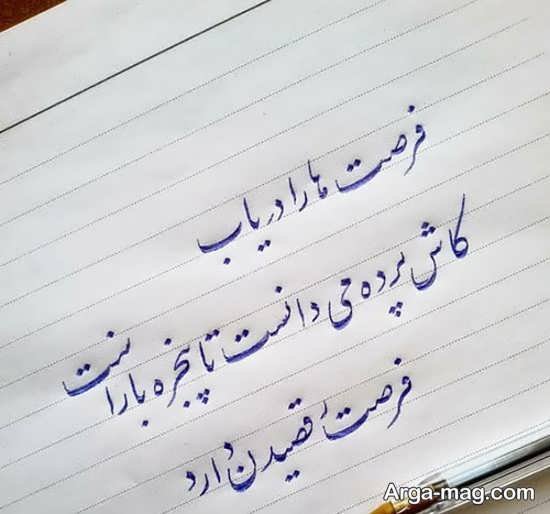 فرصت ها را دریاب
کاش پرده می دانست تا پنجره باز است
فرصت رقصیدن دارد
Arga-mag.com